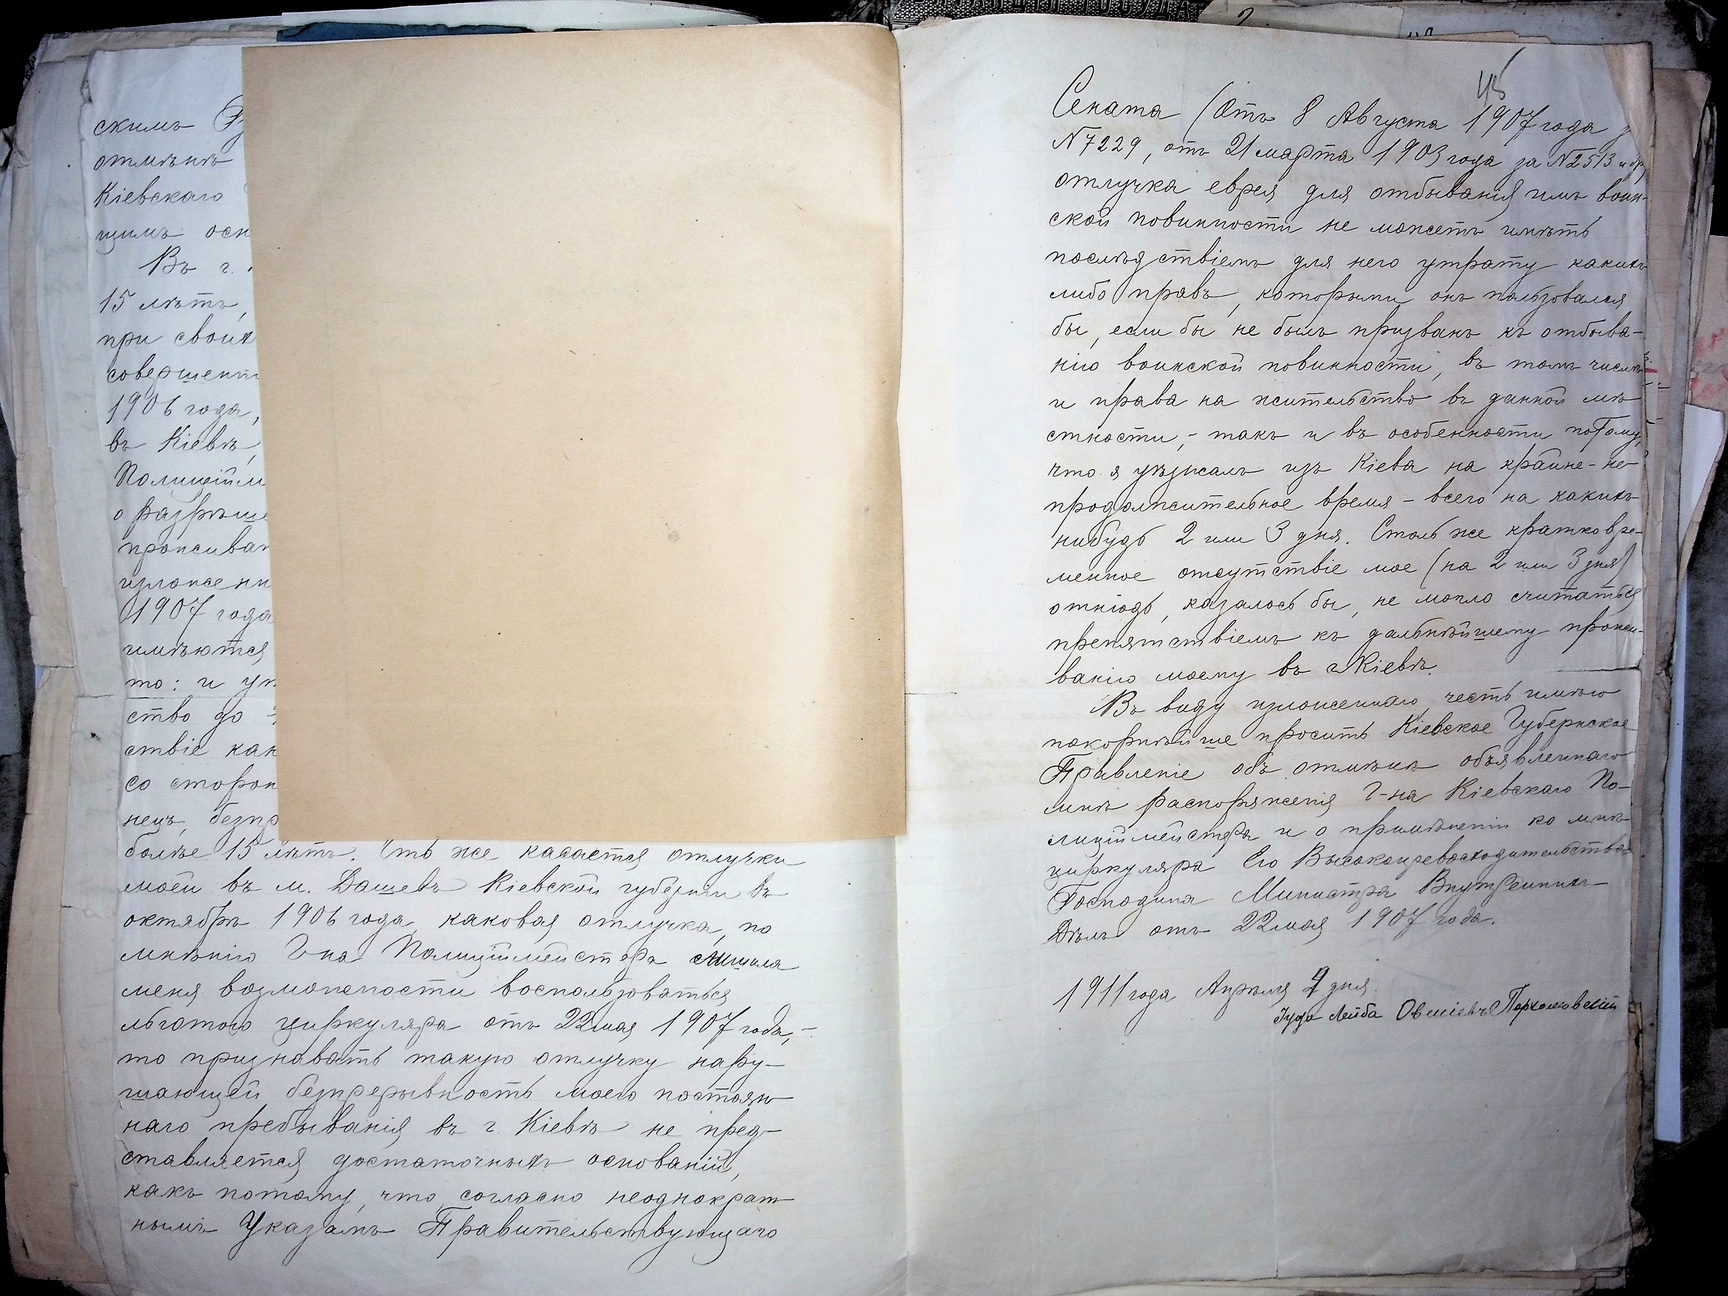 скимъ
отмѣнѣ
Кіевскаго
щимъ осн
Въ г.
15 лѣтъ,
при своих
совершенн
1906 года,
въ Кіевѣ,
Полиційм
о разрѣше
проживан
изложенн
1907 года
имѣются
то: и уп
ство до
ствіе как
со сторон
нецъ, безпр
болѣе 15 лѣтъ. Что же касается отлучки
моей въ м. Дашевъ Кіевской губерніи въ
октябрѣ 1906 года, каковая отлучка, по
мнѣнію Г-на Полиційместера лишила
меня возможности воспользоваться
льготою циркуляра отъ 22 мая 1907 года, –
то признавать такую отлучку нару-
шающей безпрерывность моего постоян-
наго пребыванія въ г. Кіевѣ не пред-
ставляется достаточныхъ основаній,
какъ потому, что согласно неоднократ-
нымъ Указамъ Правительствующаго
45
Сената (Отъ 8 Августа 1907 года
N 7229, отъ 21 марта 1903 года за N 2513 и др,
отлучка еврея для отбыванія имъ воин-
ской повинности не можетъ имѣть
послѣдствіемъ для него утрату какихъ
либо правъ, которыми онъ пользовался
бы, если бы не былъ призванъ къ отбыва-
нію воинской повинности, въ томъ числѣ
и права на жительство въ данной мѣ
стности, – такъ и въ особенности потому,
что я уѣзжалъ изъ Кіева на крайне-не-
продолжительное время – всего на какихъ
нибудь 2 или 3 дня. Столь же кратковре-
менное отсутствіе мое (на 2 или 3 дня)
отнюдь, казалось бы, не могло считаться
препятствіемъ къ дальнѣйшему прожи-
ванію моему въ г. Кіевѣ.
Въ виду изложеннаго, честь имѣю
покорнѣйше просить Кіевское Губернское
Правленіе объ отмѣнѣ объявленнаго
мнѣ распоряженія Г-на Кіевскаго По-
лиційместера и о примѣненіи ко мнѣ
циркуляра Его Высокопревосходительства
Господина Министра Внутреннихъ
Дѣлъ отъ 22 мая 1907 года.
1911 года Апрѣля 9 дня.
Іуда Лейба Овшіевъ Пархомовскій